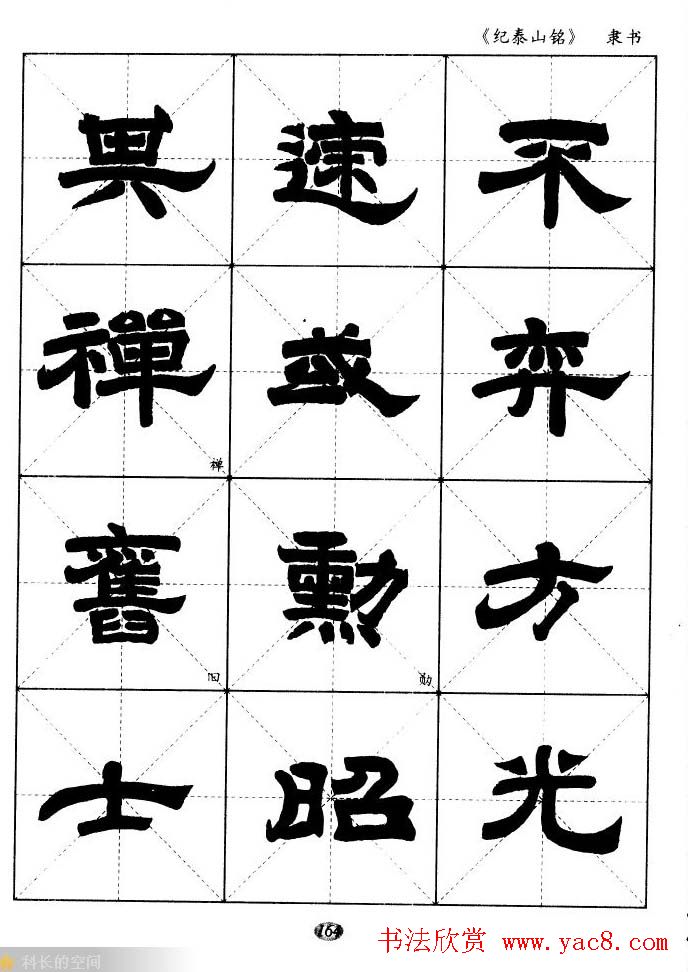 《纪泰山铭》 隶书
不弈方光
速或勳昭
勋
異禪舊士
禅
旧
164
书法欣赏 www.yac8.com
科长的空间